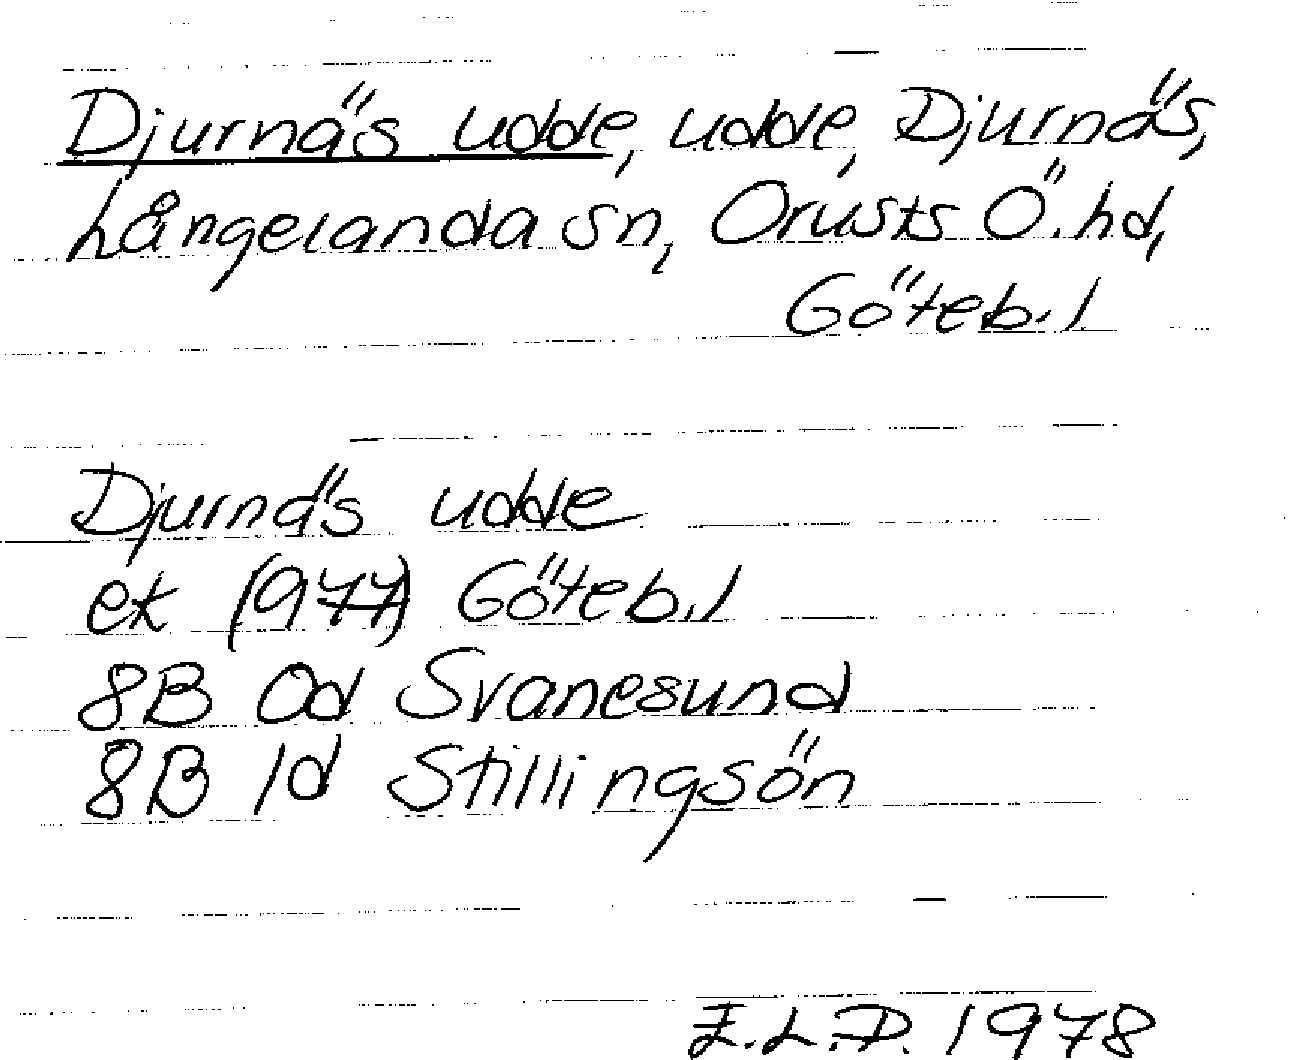 Djurnäs udde, udde, Djurnäs,
Långelanda sn, Orusts Ö. hd,
Göteb. l
Djurnäs udde
ek (977) Göteb. l
8B 0d Svanesund
8B 1d Stillingsön
E.L.D. 1978